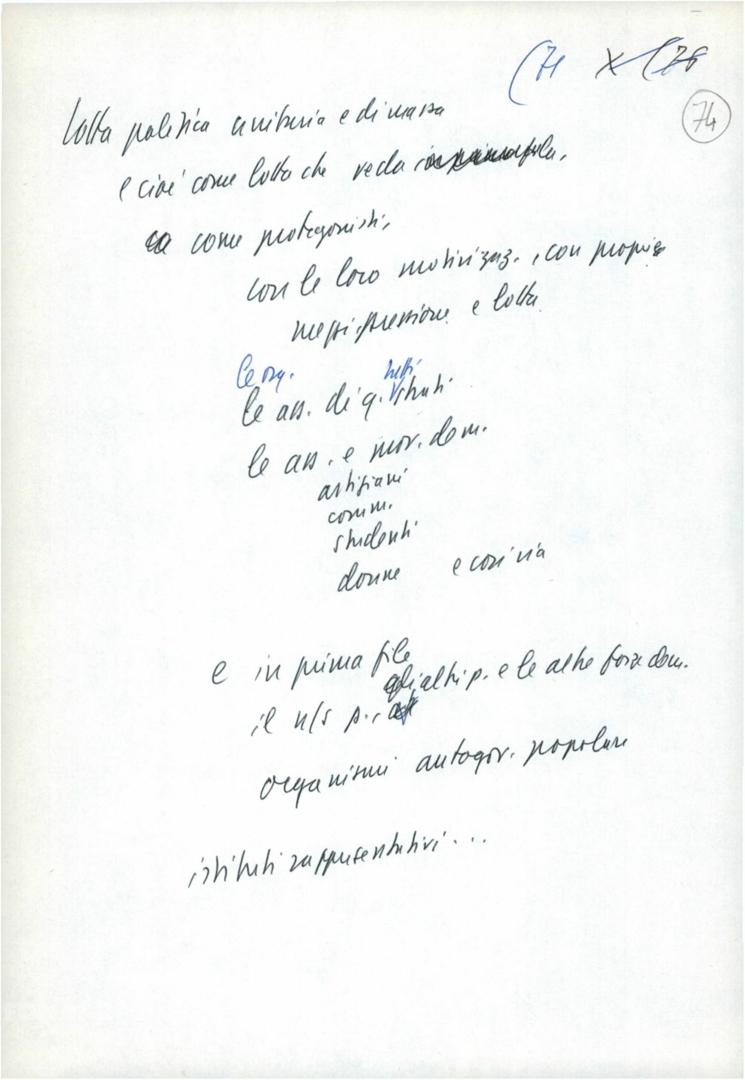 (71 X (78
74
lotta politica unitaria e di massa
e cioè come lotta che veda in prima fila,
ca come protagonisti,
con le loro motivazioz., con propria
espressione e lotta
le org. tutti
le ass. di q. strati
le ass. e mov. dem.
artigiani
comm.
studenti
donne e così via
e in prima file
gli altri p. e le altre forze dem.
il n/s p.,
organismi autogov. popolare
istituti rappresentativi...